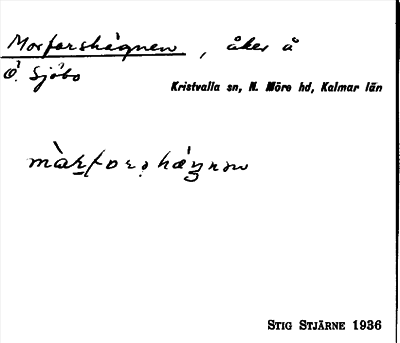 Morfarshägnen, åker å
Ö. Sjöbo
Kristvalla sn, N. Möre hd, Kalmar län
STIG STJÄRNE 1936